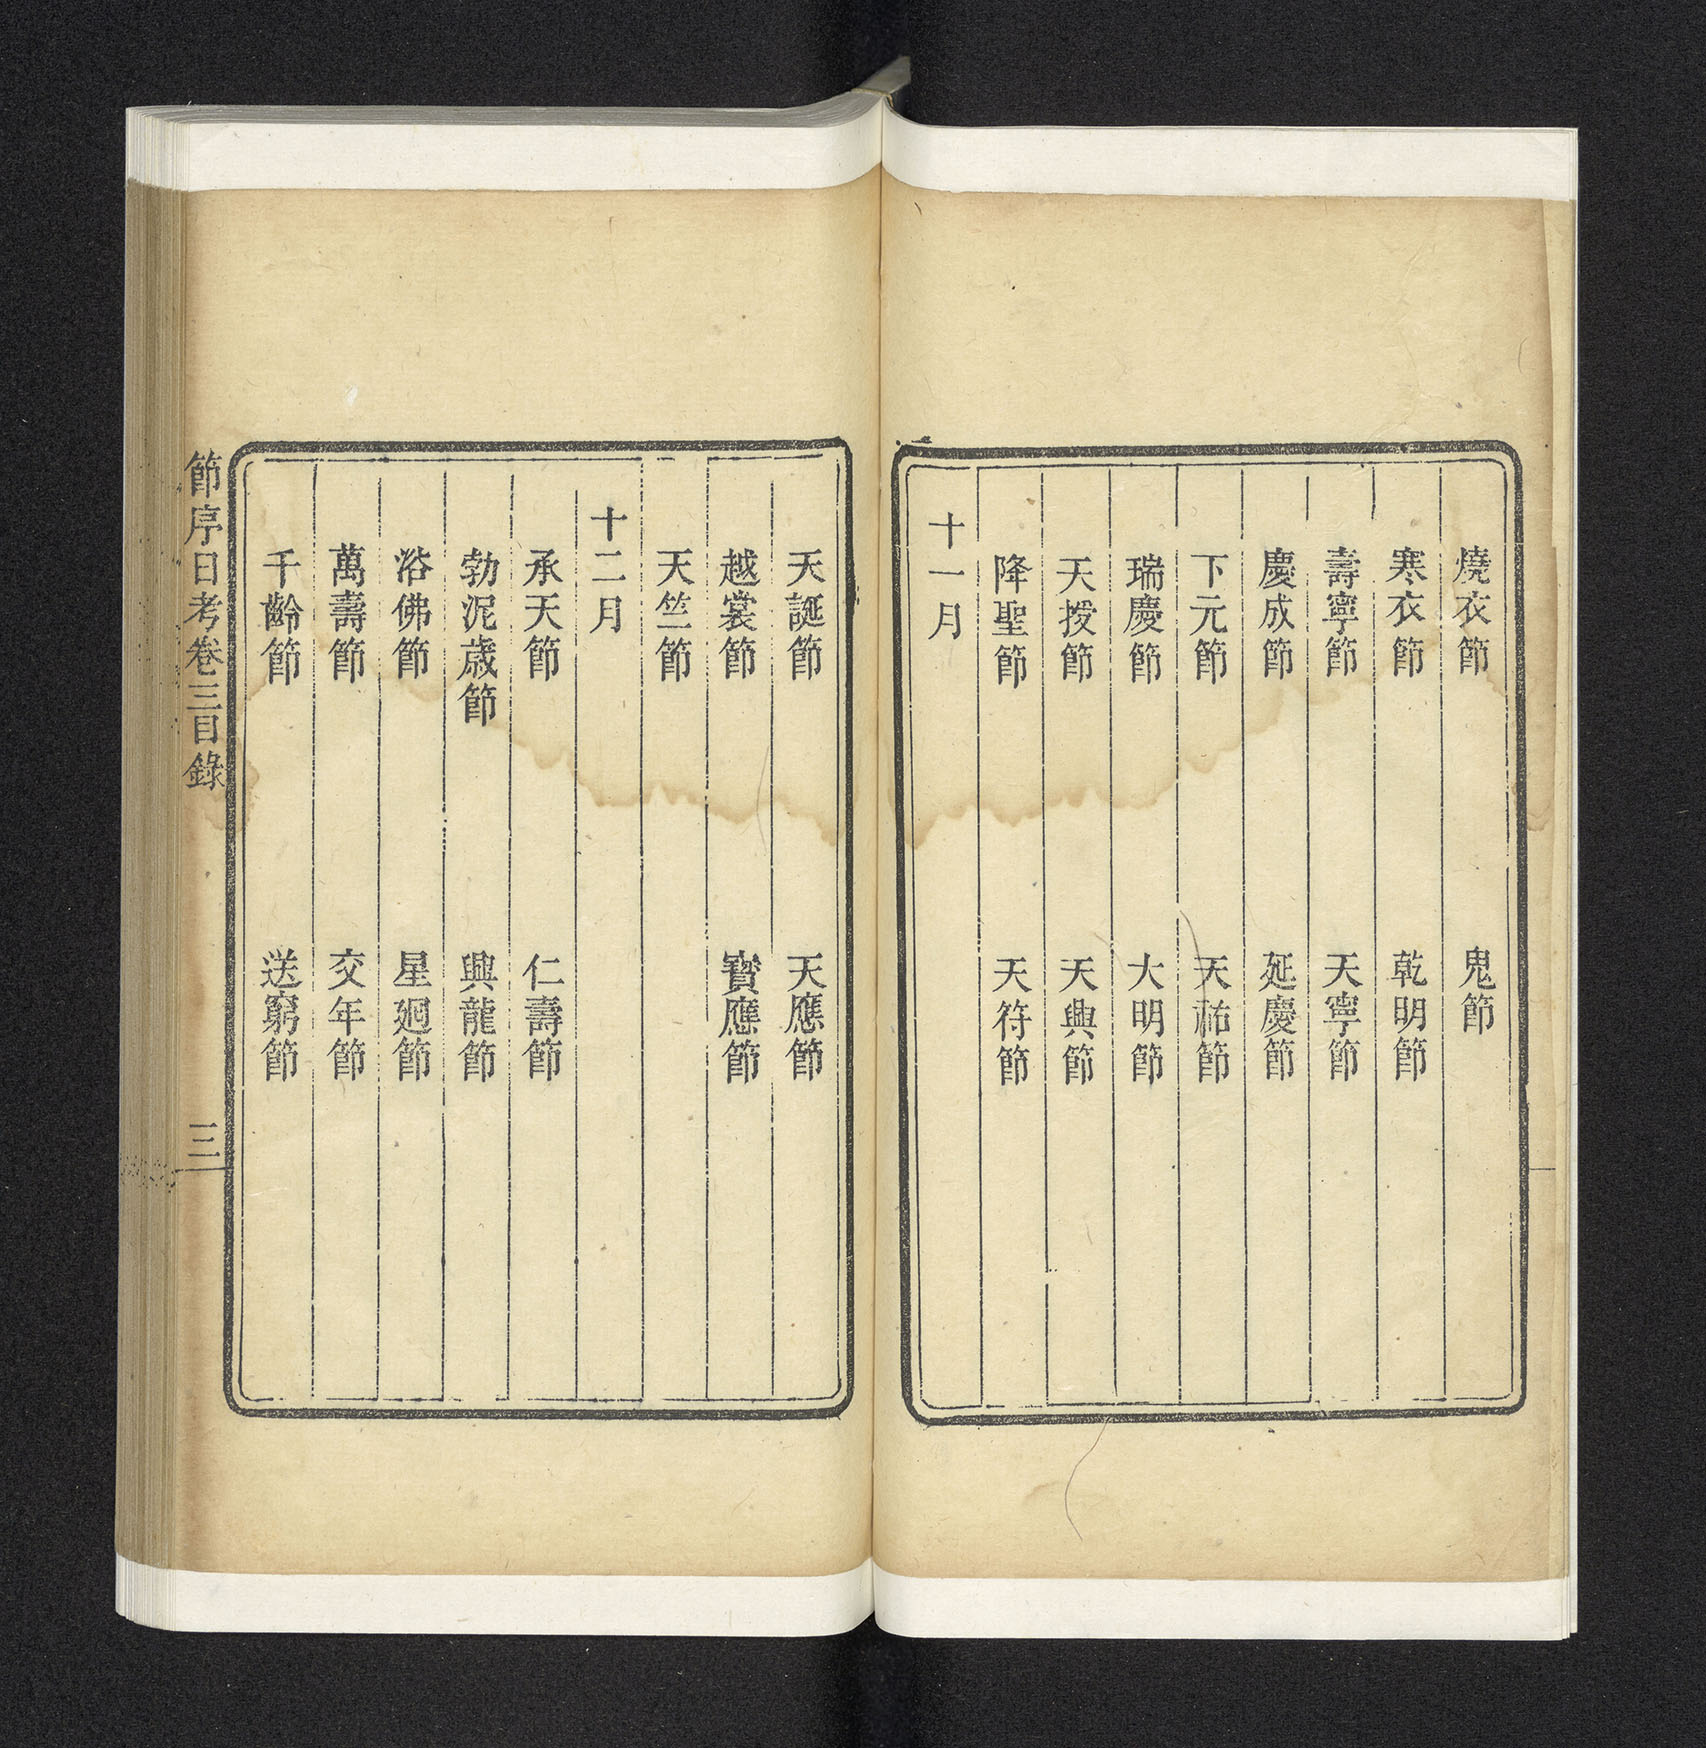 燒衣節 鬼節
寒衣節 乾明節
壽寧節 天寧節
慶成節 延慶節
下元節 天祐節
瑞慶節 大明節
天授節 天興節
降聖節 天符節
十一月
天誕節 天應節
越裳節 寳應節
天竺節
十二月
承天節 仁壽節
勃泥歳節 興龍節
浴佛節 星廻節
萬壽節 交年節
千齡節 送窮節
節序日考卷三目錄 三